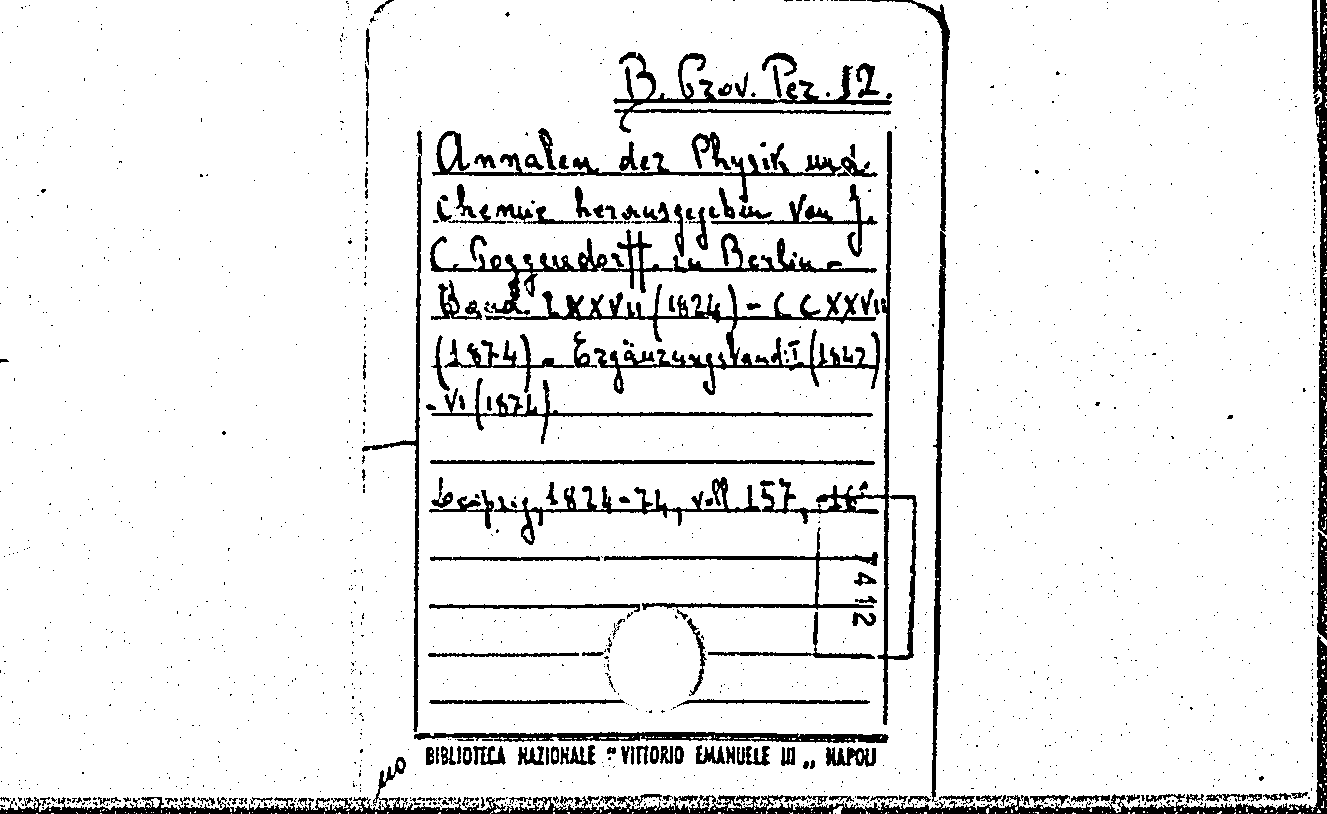 B. Prov. Per. 12.
Annalen der Physik und
Chemie herausgegeben von J.
C. Poggendorff. in Berlin -
Band LXXVII (1824) - CCXXVII
(1874) - Ergänzungsband: I (1842)
- VI (1874).
Leipzig, 1824-74, voll. 157, -16°
7412
BIBLIOTECA NAZIONALE “ VITTORIO EMANUELE III „ NAPOLI